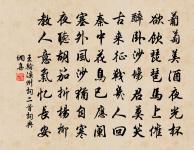 葡萄美酒夜光杯
欲飲琵琶馬上催
醉臥沙場君莫笑
古來征戰幾人回
秦中花鳥已應闌
塞外風沙猶自寒
夜聽胡笳折楊柳
教人意氣憶長安
王翰涼州詞二首詞典網